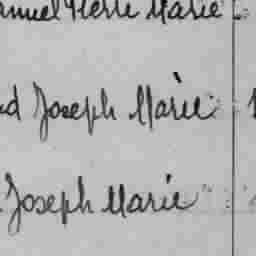 anuel Pierre Marie
d Joseph Marie
Joseph Marie